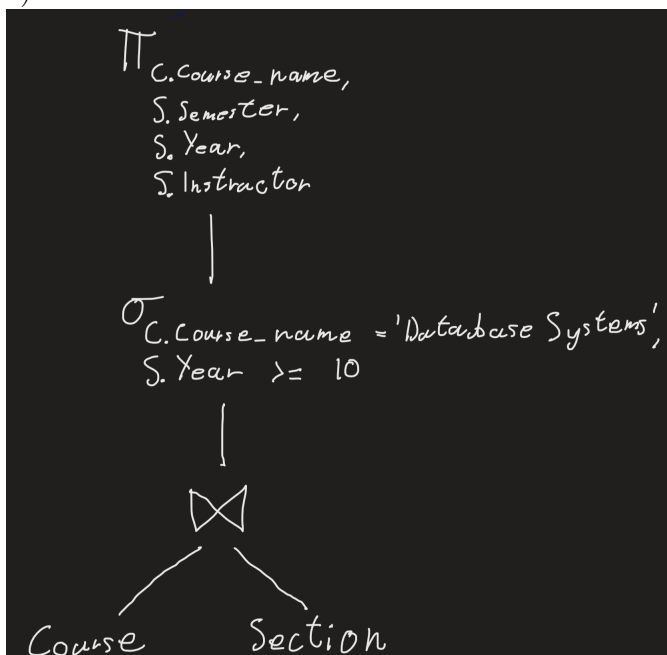 Π C.Course_name,
S.Semester,
S.Year,
S.Instractor
σ C.Course_name = 'Database Systems',
S.Year >= 10
⋈
Course Section